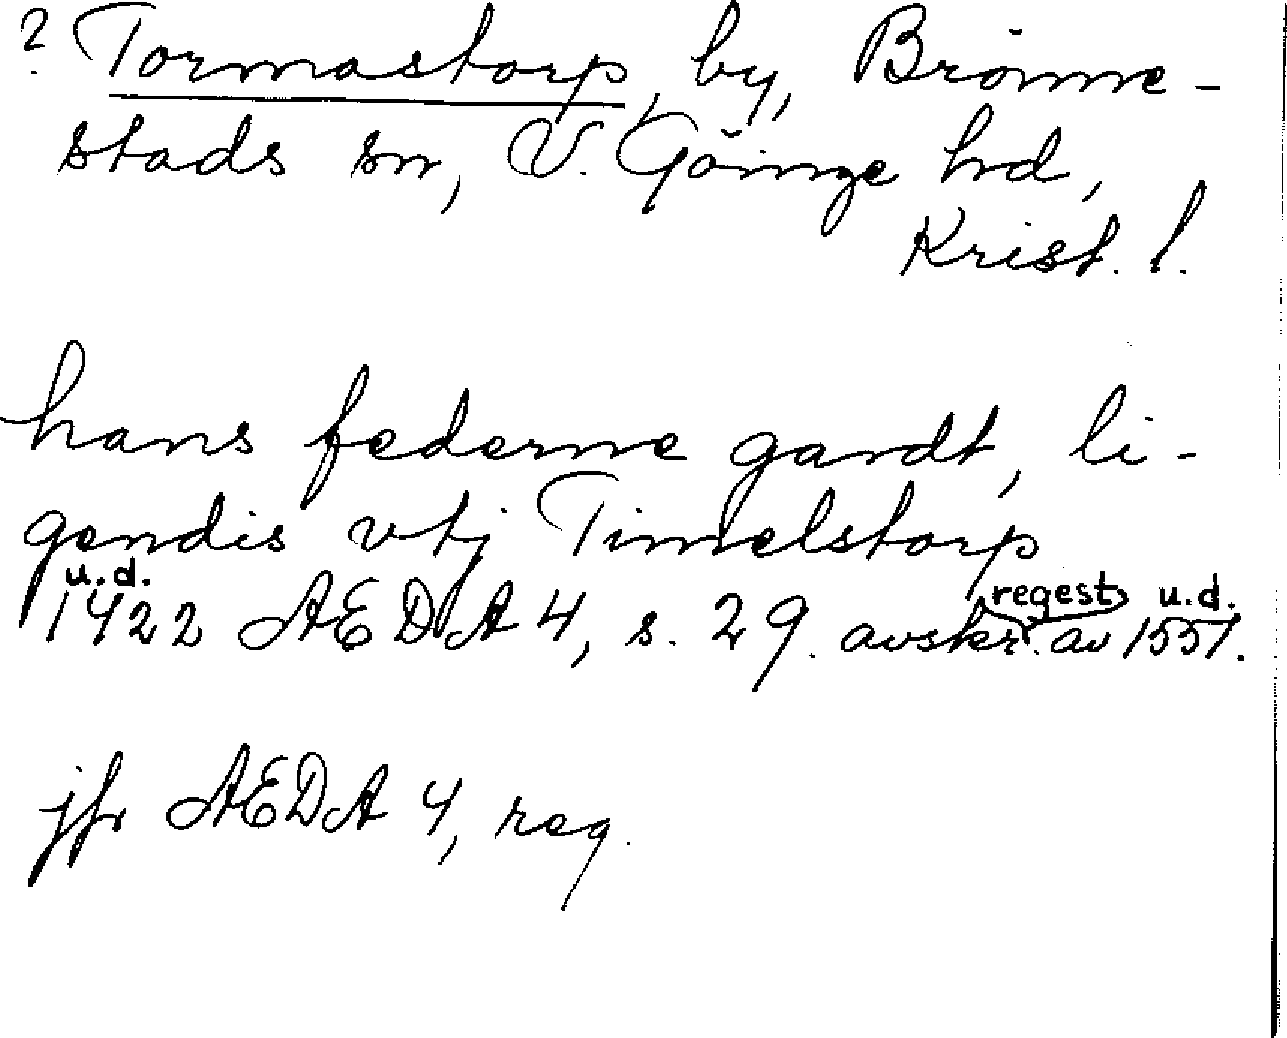 ? Tormastorp, by, Brönne-
stads sn, V. Göinge hd,
Krist. l.
hans federne gardt, li-
gendis vtj Timelstorp
u.d. regest u.d.
1422 AEDA 4, s. 29. avskr. av 1551.
jfr AEDA 4, reg.